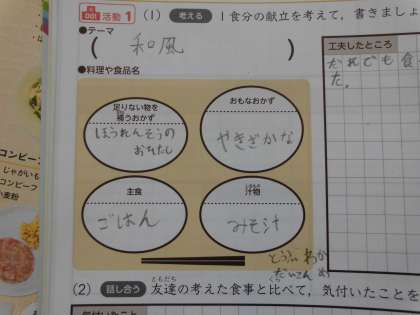 DO! 活動 1 (1) 考える 1食分の献立を考えて，書きましょ
●テーマ
( 和風 )
●料理や食品名
工夫したところ
だれでも食
た。
足りない物を
補うおかず
ほうれんそうの
おひたし
おもなおかず
やきざかな
主食
ごはん
汁物
みそ汁
とうふ わか
だいこん め
コンビーフ
じゃがいも
コンビーフ
小麦粉
(2) 話し合う 友達の考えた食事と比べて，気付いたことを
ともだち
気付いたこと